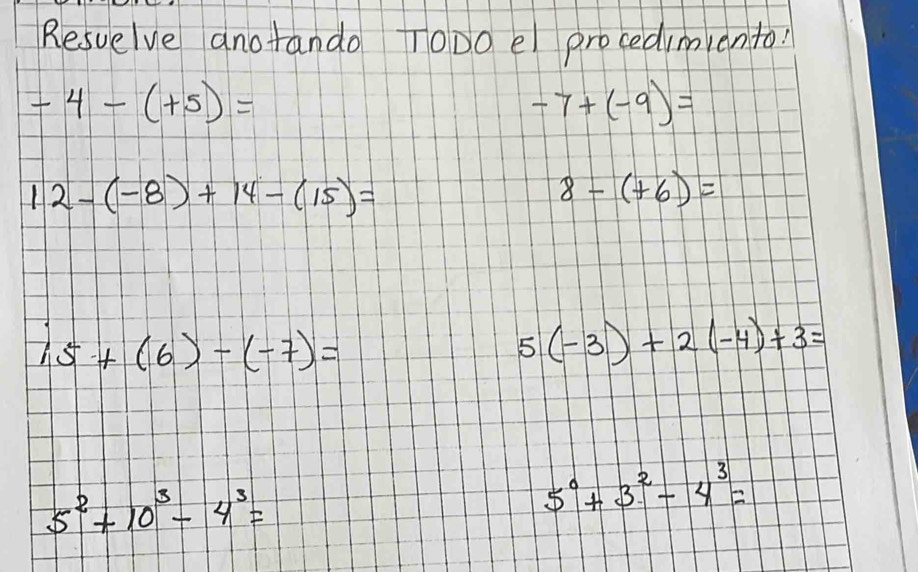 Resuelve anotando TODO el procedimiento:
-4-(+5)= -7+(-9)=
12-(-8)+14-(15)= 8-(+6)=
15+(6)-(-7)= 5(-3)+2(-4)+3=
5²+10³-4³= 5⁰+3²-4³=